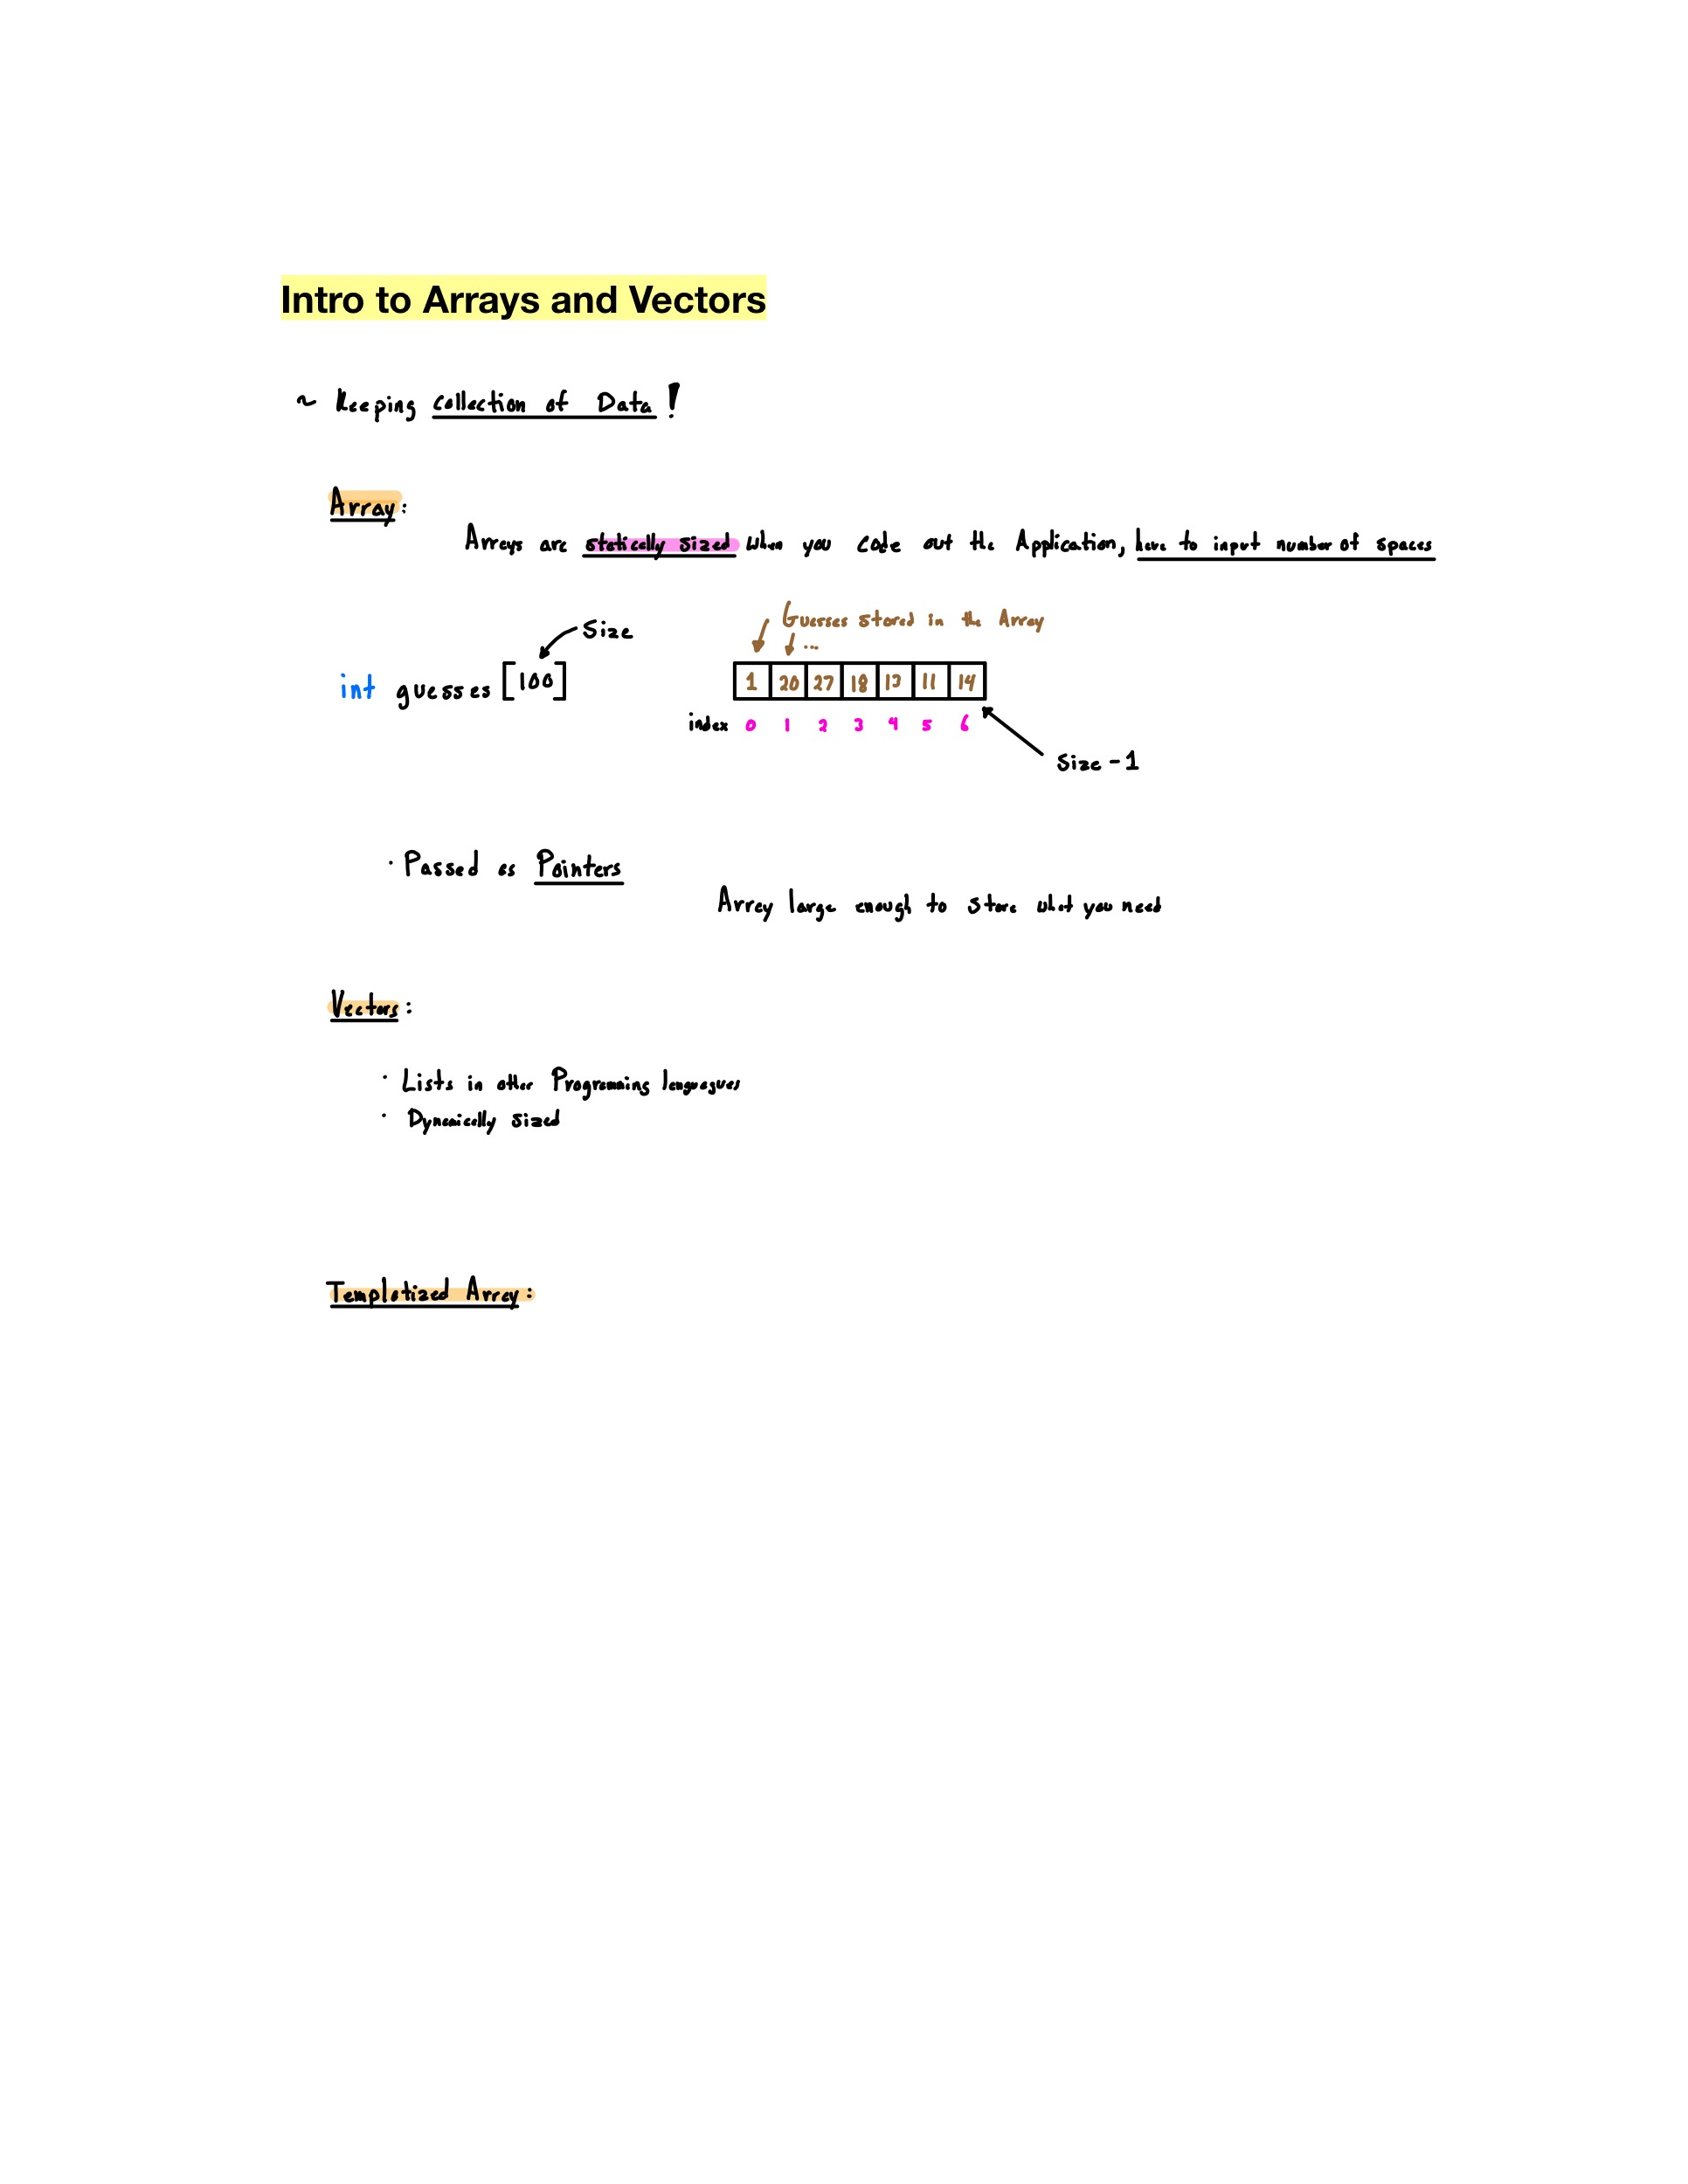 Intro to Arrays and Vectors
~ Keeping collection of Data!
Array:
Arrays are statically sized when you code out the Application, have to input number of spaces
Guesses stored in the Array
Size
...
int guesses [100]
1 20 27 18 13 11 14
index 0 1 2 3 4 5 6
Size - 1
· Passed as Pointers
Array large enough to store what you need
Vectors:
· Lists in other Programming
· Dynamically sized
Templatized Array: